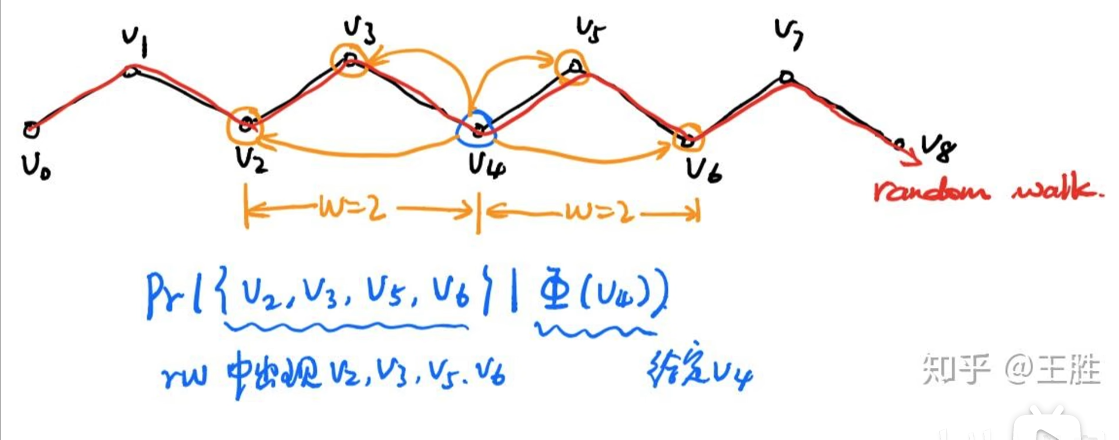 v1 v3 v5 v7
v0 v2 v4 v6 v8
random walk.
w=2 w=2
Pr({v2, v3, v5, v6} | Φ(v4))
rw 中出现 v2, v3, v5. v6 给定v4
知乎 @王胜